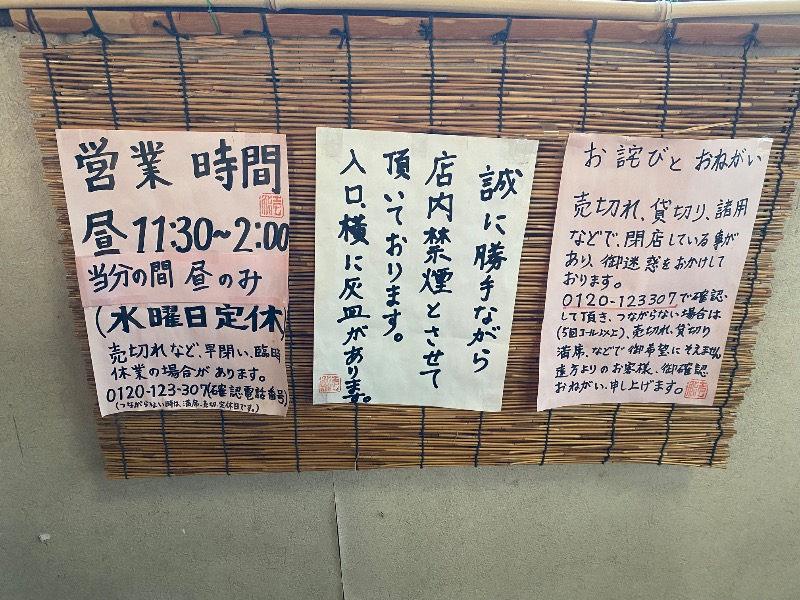 営業 時間
昼 11:30~2:00
当分の間 昼のみ
(水曜日定休)
売切れなど、早閉い、臨時
休業の場合があります。
0120-123-307(確認電話番号)
(つながらない時は、満席、売切、定休日です。)
誠に勝手ながら
店内禁煙とさせて
頂いております。
入口、横に灰皿があります。
お詫びと おねがい
売切れ、貸切り、諸用
などで、閉店している事が
あり、御迷惑をおかけして
おります。
0120-123307で確認、
して頂き、つながらない場合は
(5回コール以上)、売切れ、貸切り
満席、などで御希望にそえません
遠方よりのお客様、御確認
おねがい、申し上げます。